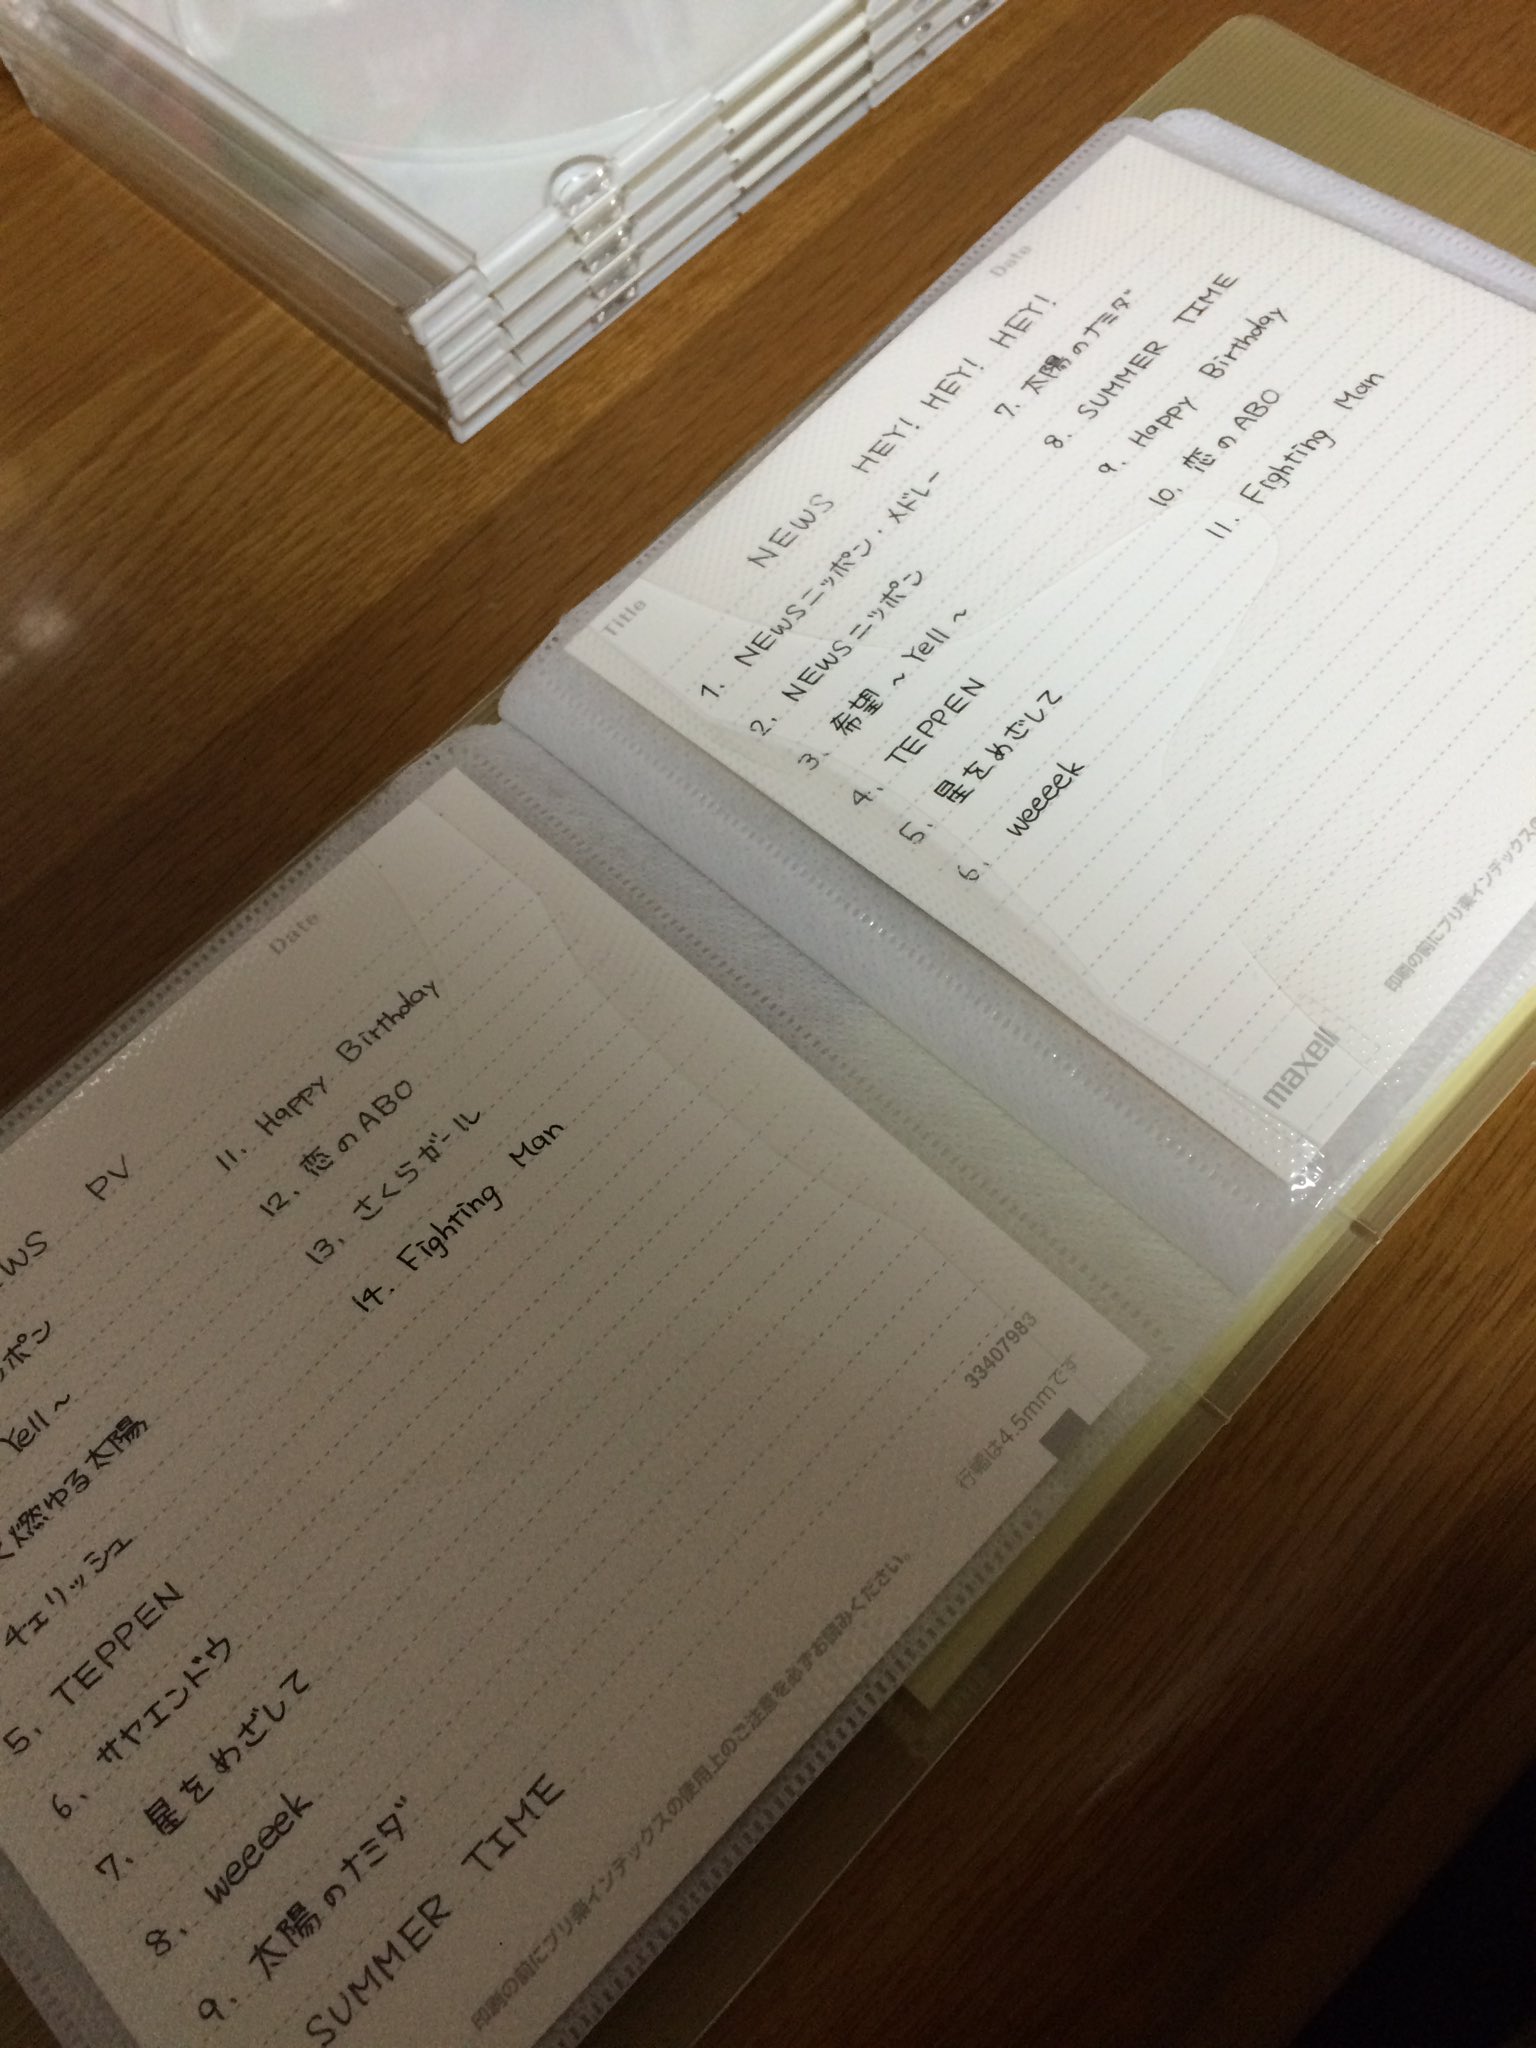 Title
Date
NEWS HEY! HEY! HEY!
1. NEWSニッポン・メドレー
2. NEWSニッポン
3. 希望 ~ Yell ~
4. TEPPEN
5. 星をめざして
6. weeeek
7. 太陽のナミダ
8. SUMMER TIME
9. Happy Birthday
10. 恋のABO
11. Fighting Man
maxell
印刷の前にプリ楽インデックスの
Date
PV
ッポン
Yell ~
燃ゆる太陽
チェリッシュ
5. TEPPEN
6. サヤエンドウ
7. 星をめざして
8. weeeek
9. 太陽のナミダ
SUMMER TIME
11. Happy Birthday
12. 恋のABO
13. さくらガール
14. Fighting Man
33407983
行幅は4.5mmです
印刷の前にプリ楽インデックスの使用上のご注意を必ずお読みください。